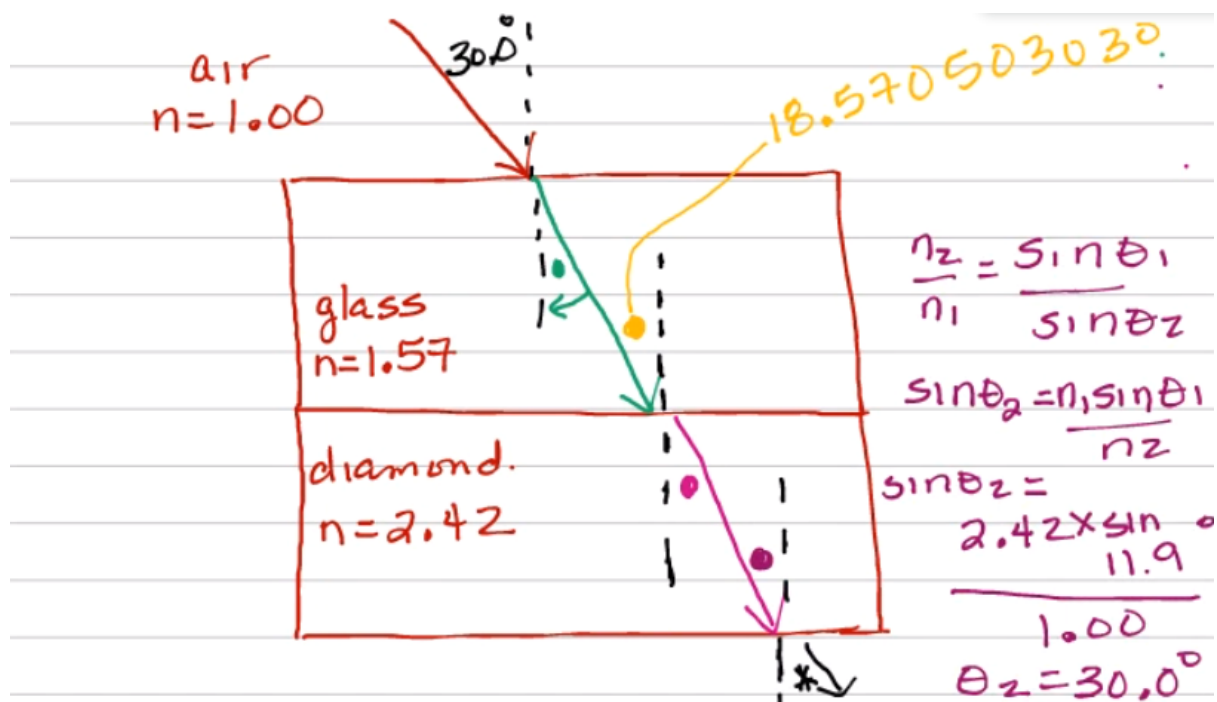 30.0°
air
n=1.00
18.570503030
glass
n=1.57
diamond.
n=2.42
*
n2/n1 = sinθ1/sinθ2
sinθ2 = n1sinθ1/n2
sinθ2 =
2.42×sin 11.9°
1.00
θ2=30.0°